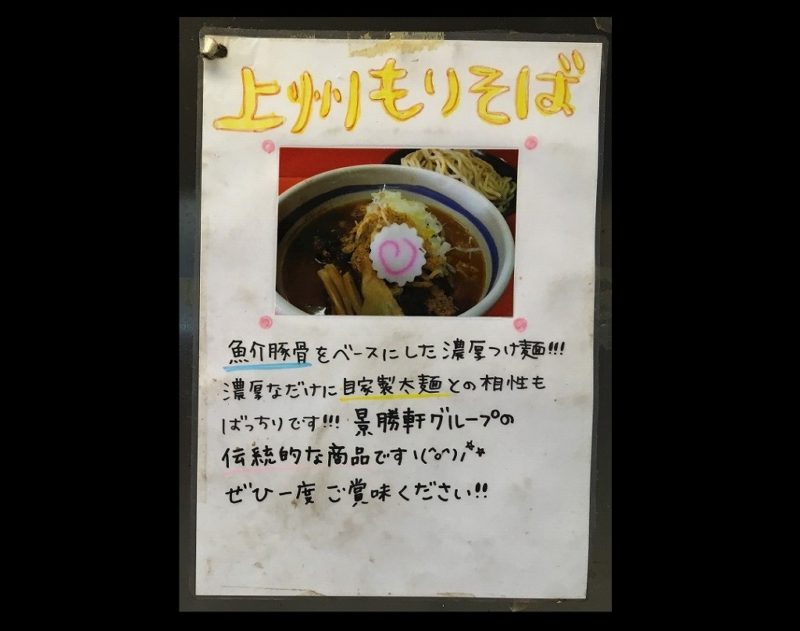 上州もりそば
魚介豚骨をベースにした濃厚つけ麺!!!
濃厚なだけに自家製太麺との相性も
ばっちりです!!! 景勝軒グループの
伝統的な商品ですヽ(^o^)ノ**
ぜひ一度 ご賞味ください!!